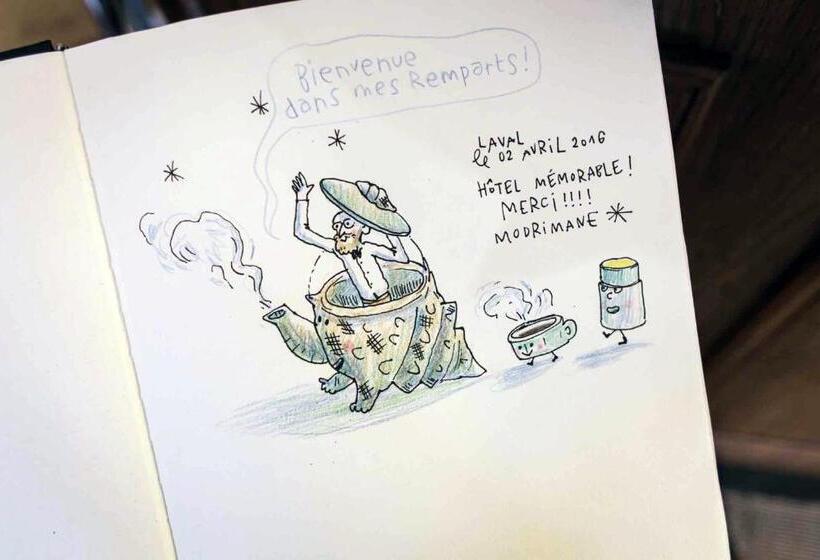 Bienvenue
dans mes Remparts!
LAVAL
le 02 AVRiL 2016
HÔTEL MÉMORABLE!
MERCi!!!!
MODRiMANE